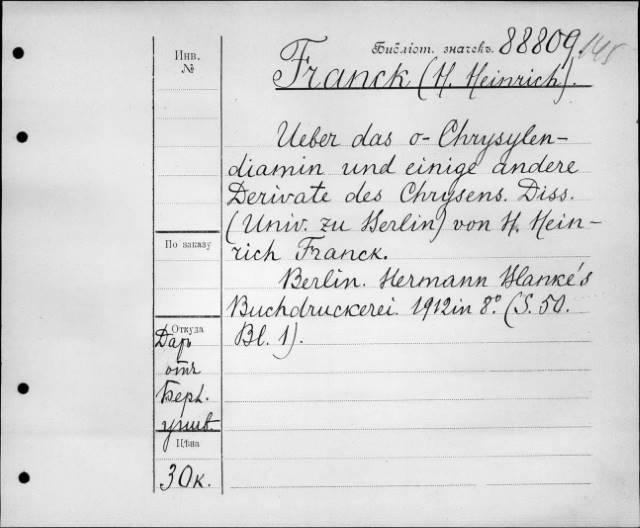 Инв.
№
Библіот. значекъ. 88809/145
Franck (H. Heinrich).
Ueber das o-Chrysylen-
diamin und einige andere
Derivate des Chrysens. Diss.
(Univ. zu Berlin) von H. Hein-
rich Franck.
Berlin. Hermann Blanke's
Buchdruckerei. 1912 in 8º. (S. 50.
Bl. 1).
По заказу
Откуда
Даръ
отъ
Берл.
унив.
Цѣна
30 к.